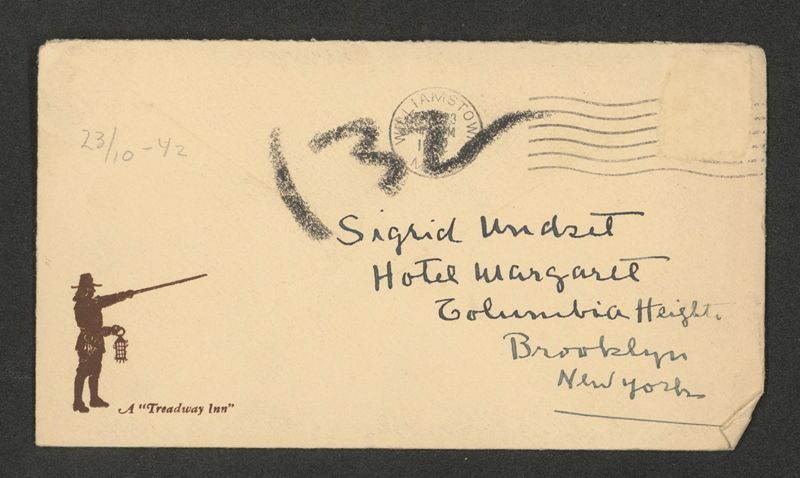 WILLIAMSTOWN
23/10-42
132
Sigrid Undset
Hotel Margaret
Columbia Heights
Brooklyn
New York
A "Treadway Inn"